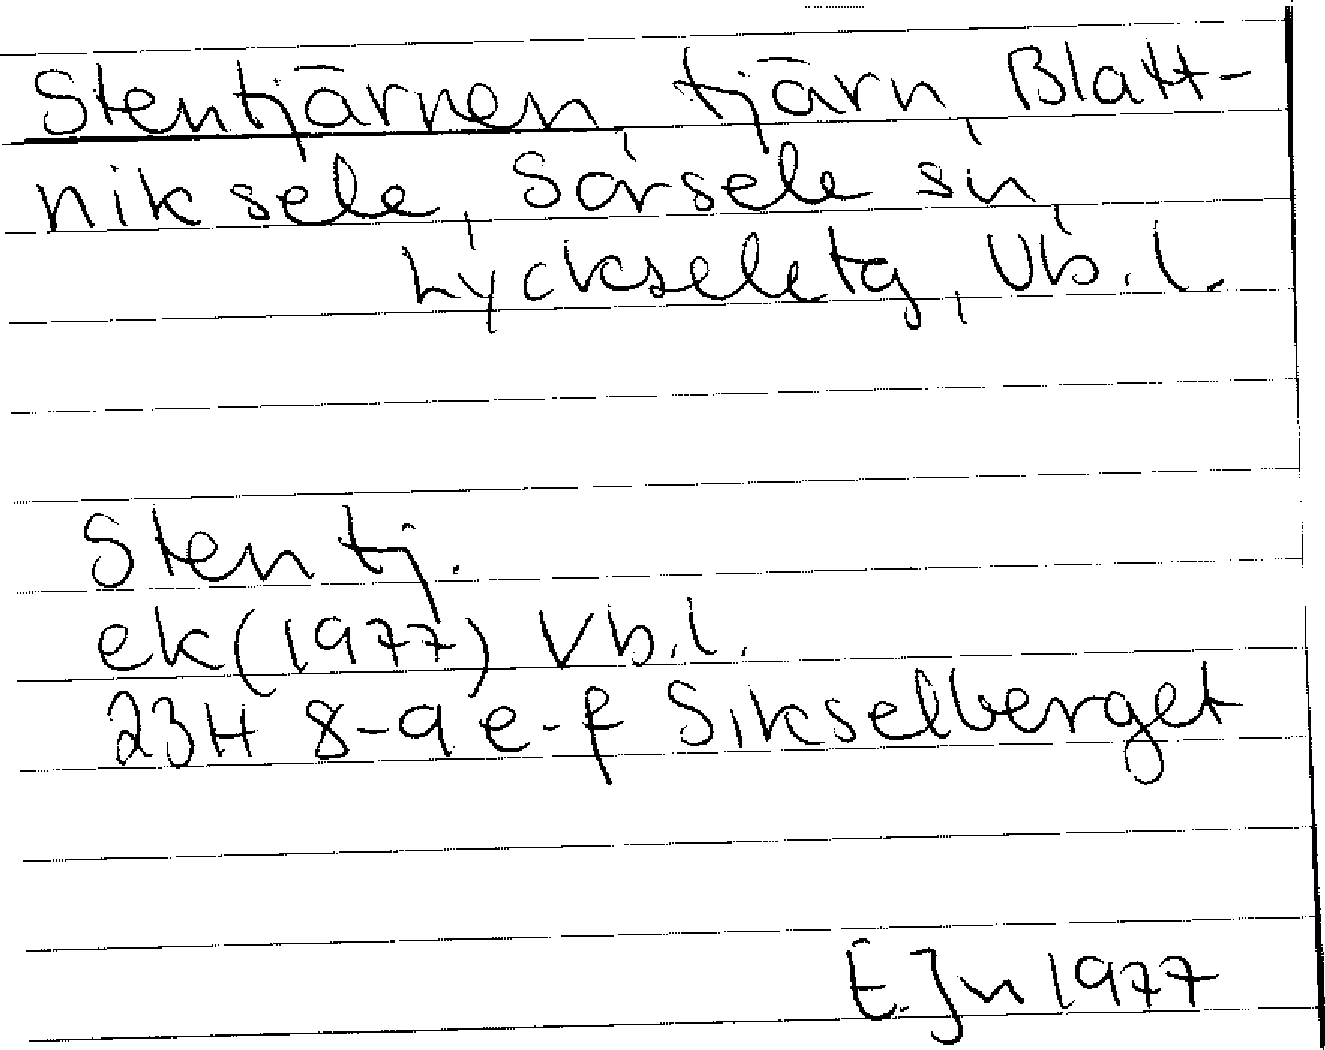 Stentjärnen, tjärn, Blatt-
niksele, Sorsele sn,
Lyckseletg, Vb. l.
Stentj.
ek (1977) Vb.l.
23H 8-9 e-f Sikselberget
E. Jn 1977